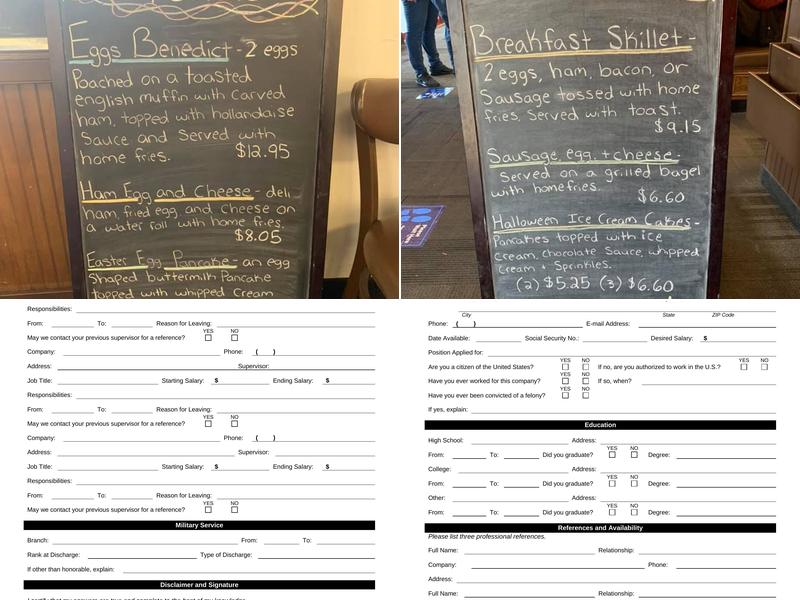 Eggs Benedict - 2 eggs
Poached on a toasted
english muffin with carved
ham, topped with hollandaise
Sauce and Served with
home fries. $12.95
Ham Egg and Cheese - deli
ham, fried egg, and cheese on
a water roll with home fries.
$8.05
Easter Egg Pancake - an egg
Shaped buttermilk Pancake
topped with whipped Cream
Breakfast Skillet -
2 eggs, ham, bacon, or
Sausage tossed with home
fries. Served with toast.
$9.15
Sausage, egg, + cheese -
Served on a grilled bagel
with homefries.
$6.60
Halloween Ice Cream Cakes -
Pancakes topped with ice
Cream, chocolate Sauce, whipped
Cream + Sprinkles.
(2) $5.25 (3) $6.60
Responsibilities:
From: To: Reason for Leaving:
YES NO
May we contact your previous supervisor for a reference?
Company: Phone: ( )
Address: Supervisor:
Job Title: Starting Salary: $ Ending Salary: $
Responsibilities:
From: To: Reason for Leaving:
YES NO
May we contact your previous supervisor for a reference?
Company: Phone: ( )
Address: Supervisor:
Job Title: Starting Salary: $ Ending Salary: $
Responsibilities:
From: To: Reason for Leaving:
YES NO
May we contact your previous supervisor for a reference?
Military Service
Branch: From: To:
Rank at Discharge: Type of Discharge:
If other than honorable, explain:
Disclaimer and Signature
City State ZIP Code
Phone: ( ) E-mail Address:
Date Available: Social Security No.: Desired Salary: $
Position Applied for:
YES NO YES NO
Are you a citizen of the United States? If no, are you authorized to work in the U.S.?
YES NO
Have you ever worked for this company? If so, when?
YES NO
Have you ever been convicted of a felony?
If yes, explain:
Education
High School: Address:
YES NO
From: To: Did you graduate? Degree:
College: Address:
YES NO
From: To: Did you graduate? Degree:
Other: Address:
YES NO
From: To: Did you graduate? Degree:
References and Availability
Please list three professional references.
Full Name: Relationship:
Company: Phone:
Address:
Full Name: Relationship: